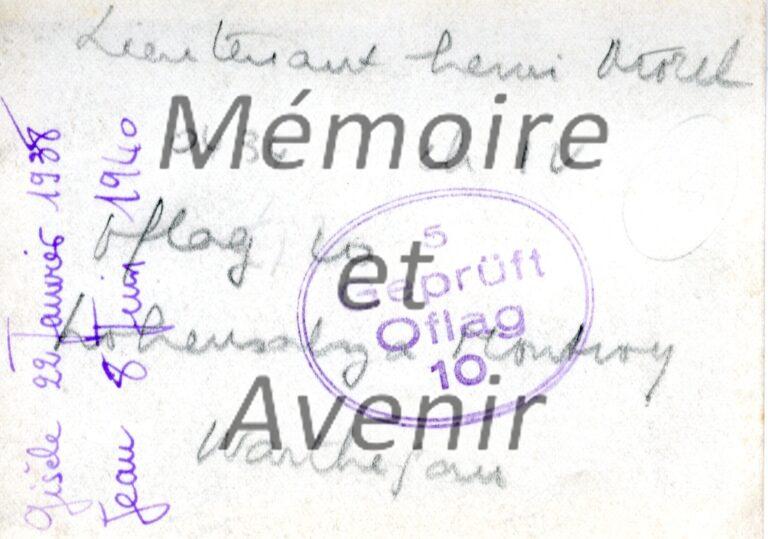 Lieutenant henri Morel
Mémoire
Oflag
et
5
Geprüft
Oflag
10
Hohensalza Montwy
Avenir
Warthegau
Gisèle 22 Janvier 1938
Jean 8 Juin 1940